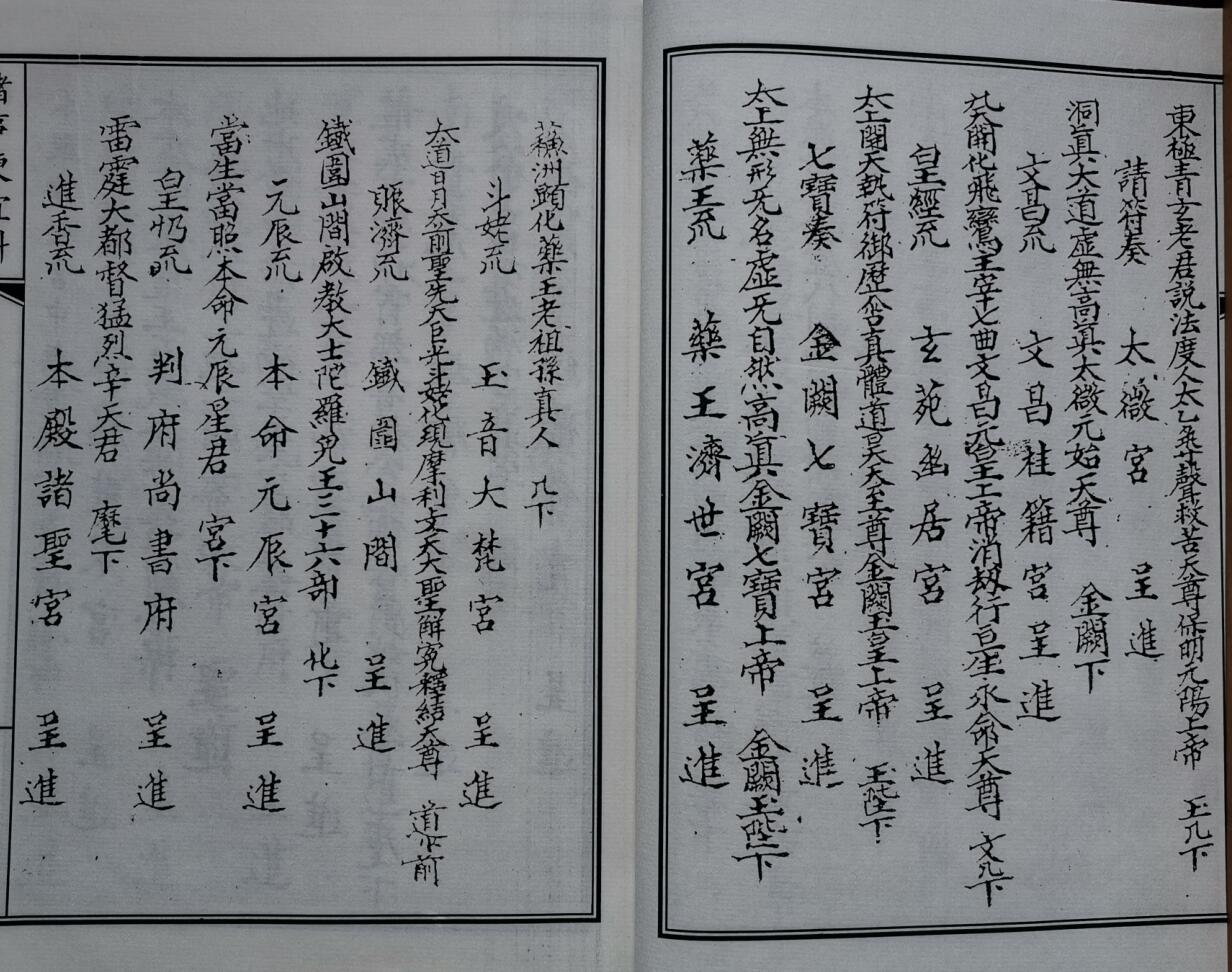 東極青玄老君説法度人太乙尋聲救苦天尊保明元陽上帝 玉几下
請符奏 太微宮 呈進
洞眞大道虛無高眞太微元始天尊 金闕下
文昌㐬 文昌桂籍宮呈進
九天開化飛鸞主宰十七曲文昌元皇上帝消劫行㐬生永命天尊 文几下
皇經㐬 玄苑丞居宮 呈進
太上開天執符御歷含真體道昊天大至尊金闕玉皇上帝 玉陛下
七寶奏 金闕七寶宮 呈進
太上無形无名虛无自然高眞金闕七寶上帝 金闕玉陛下
藥王㐬 藥王濟世宮 呈進
蘓洲顕化藥王老祖孫真人 几下
斗姥㐬 玉音大梵宮 呈進
大道日月天前聖先天巨光斗姥化現摩利支天大聖解寃釋結天尊 道前
賑濟㐬 鐵圍山間 呈進
鐵圍山間啟教大士陀羅鬼王三十六部 化下
元辰㐬 本命元辰宮 呈進
當生當照本命元辰星君 宮下
皇㐬 判府尚書府 呈進
雷霆大都督猛烈辛天君 麾下
進香㐬 本殿諸聖宮 呈進